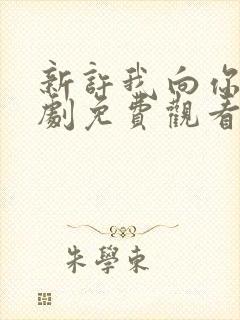 新許我向你
劇免費觀看
朱學東